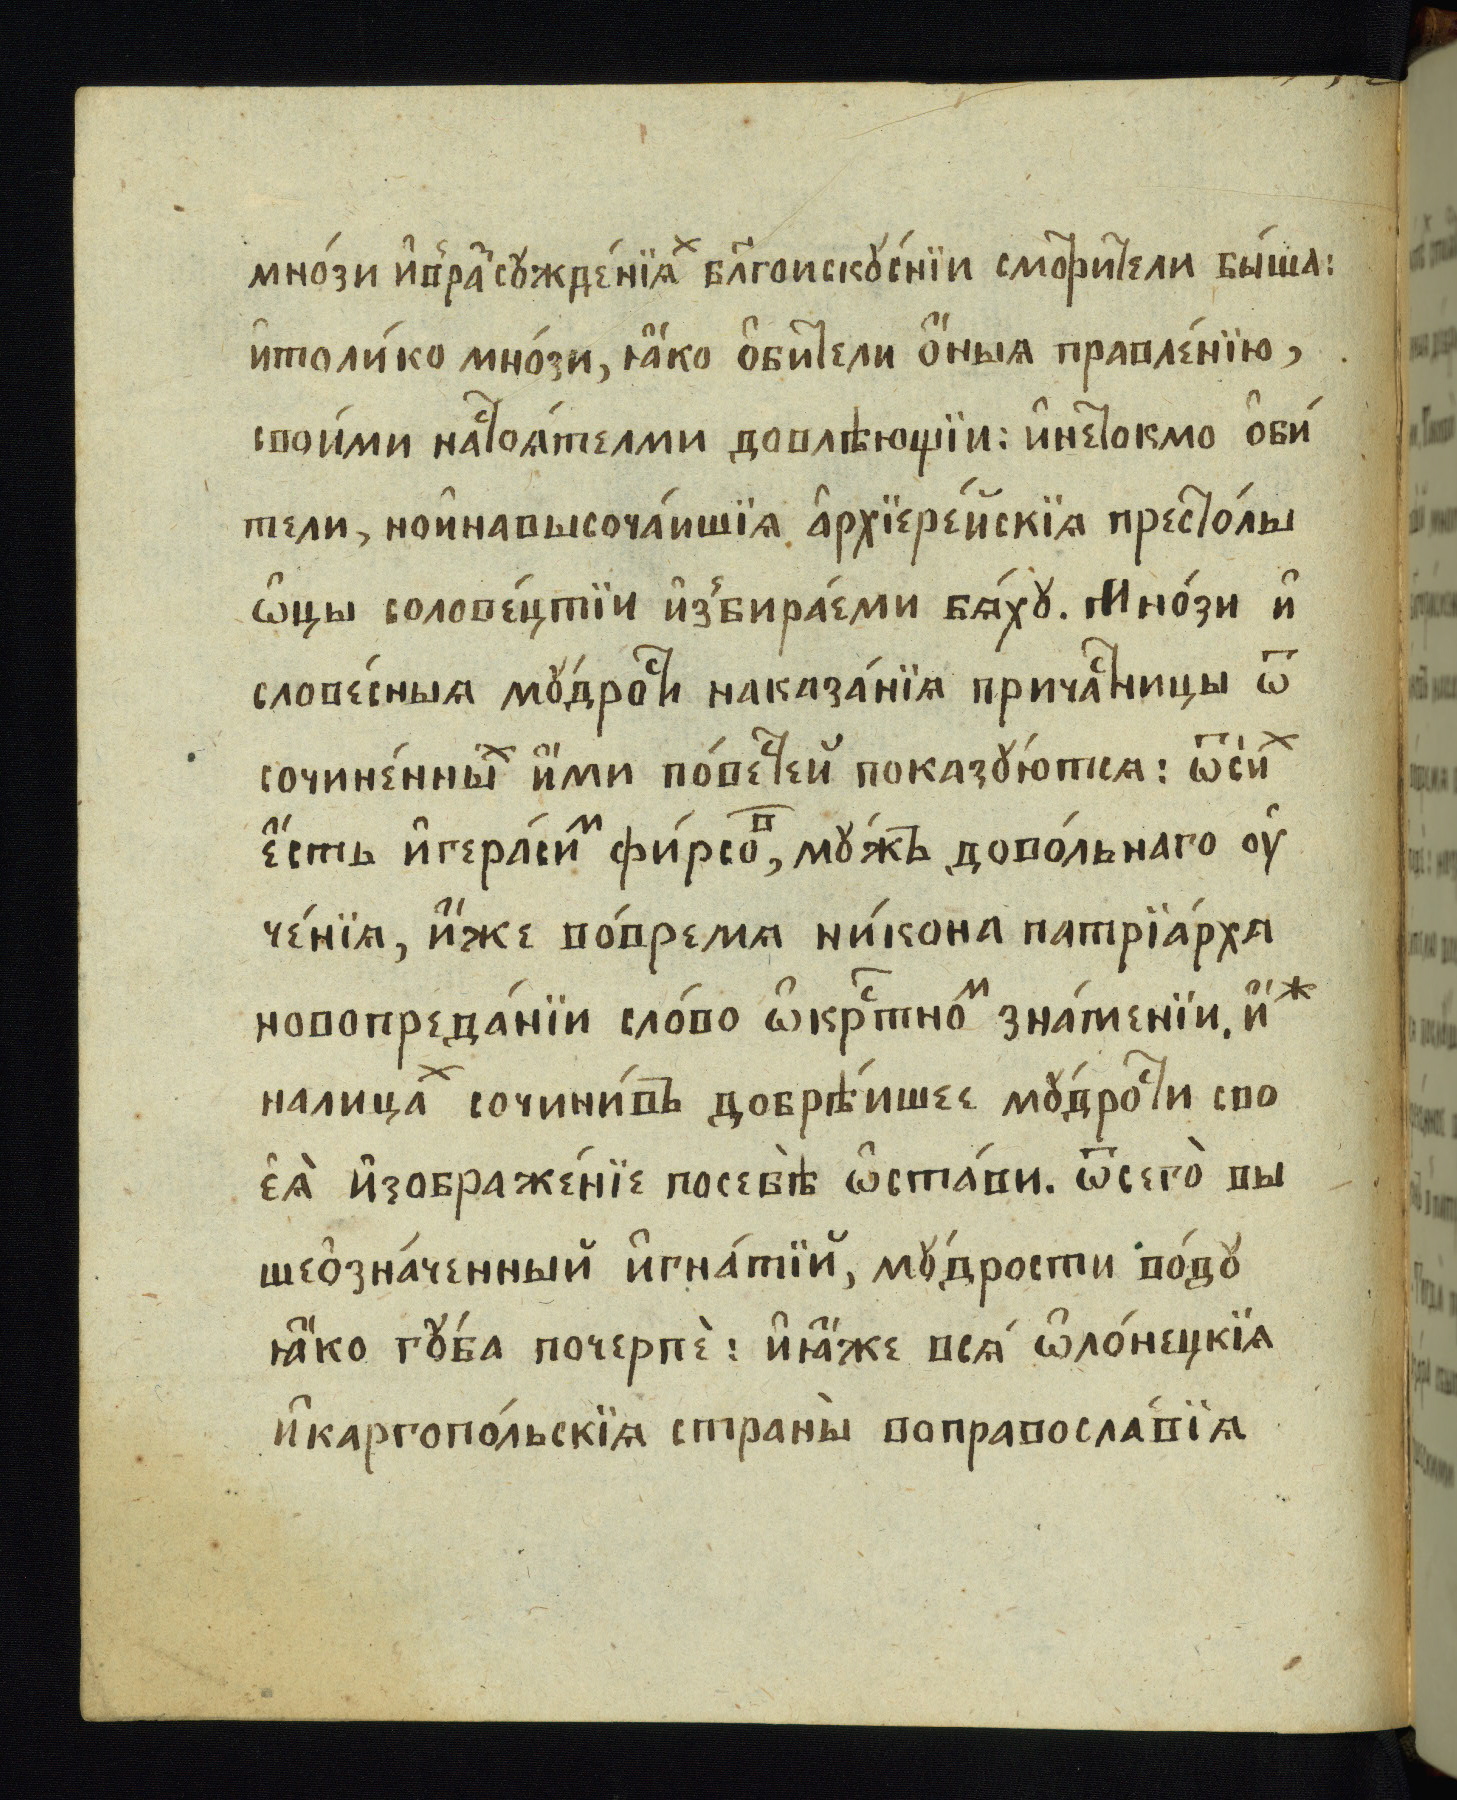 мно́зи и҆в̾раⷭ҇сꙋжде́нїѧⷯ бл҃гоискꙋ́снїи смоⷮри́ⷮели бы́ша:
и҆толи́ко мно́зи, ꙗ҆́ко ѻ҆би́ⷮели ѻ҆́ныѧ правле́нїю,
свои́ми наⷭ҇ⷮоѧ́телми довлѣ́ющїи: и҆неⷮокмо ѻ҆би́
тели, нои҆навысоча́ишїѧ а҆рхїере́йскїѧ престо́лы
ѡ҆цы солове́цтїи и҆з̾бира́еми бѧ́хꙋ. Мно́зи и҆
слове́сныѧ мꙋ́дроⷭ҇ⷮи наказа́нїѧ прича́ⷭ҇ⷮницы ѿ
сочине́нныⷯ и҆́ми по́веⷭ҇ⷮей показꙋ́ютсѧ: ѿси́ⷯ
є҆́сть и҆гера́сиⷨ фи́рсоⷡ҇, мꙋ́жъ дово́льнаго оу҆
че́нїѧ, и҆́же во́времѧ ни́кона патрїа́рха
новопреда́нїи сло́во ѡ҆крⷭ҇тноⷨ зна́менїи. и҆́ⷤ
налица́ⷯ сочини́въ добрѣ́ишее мꙋ́дроⷭ҇ⷮи сво
еѧ̀ и҆зображе́нїе посебѣ̀ ѡ҆ста́ви. ѿсего̀ вы
шеѻ҆зна́ченный и҆гна́тїй, мꙋ́дрости во́дꙋ
ꙗ҆́ко гꙋ́ба почерпѐ: и҆ꙗ҆́же всѧ́ ѡ҆ло́нецкїѧ
и҆каргопо́льскїѧ страны̀ воправосла́вїѧ